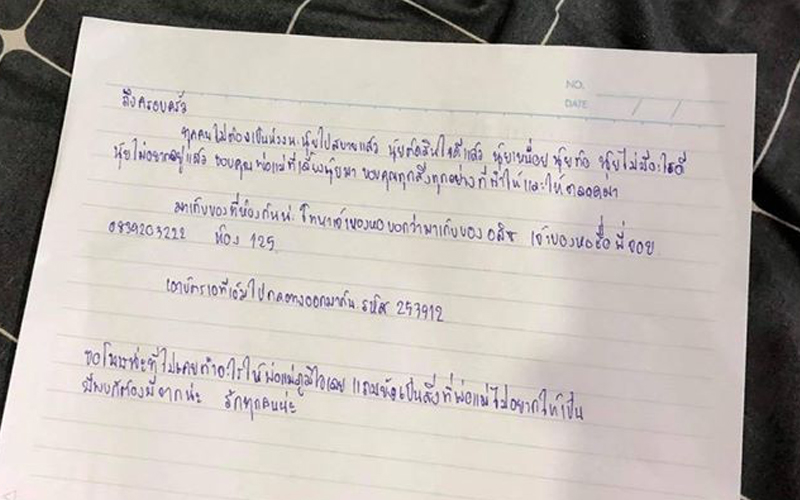 NO.
DATE
ถึงครอบครัว
ทุกคนไม่ต้องเป็นห่วงนะ นุ้ยไปสบายแล้ว นุ้ยตัดสินใจดีแล้ว นุ้ยเหนื่อย นุ้ยท้อ นุ้ยไม่มีอะไรดี
นุ้ยไม่อยากอยู่แล้ว ขอบคุณพ่อแม่ที่เลี้ยงนุ้ยมา ขอบคุณทุกสิ่งทุกอย่างที่ทำให้และให้ตลอดมา
มาเก็บของที่ห้องด้วยน่ะ โทหาเจ้าของหอบอกว่ามาเก็บของ อลิช เจ้าของหอชื่อ พี่จอย
0839203222 ห้อง 125
เอาบัตรเอทีเอ็มไปกดตางออกมาด้วย รหัส 257912
ขอโทษน่ะที่ไม่เคยทำอะไรให้พ่อแม่ภูมิใจเลย แถมยังเป็นสิ่งที่พ่อแม่ไม่อยากให้เป็น
มีพบก็ต้องมีจากน่ะ รักทุกคนน่ะ